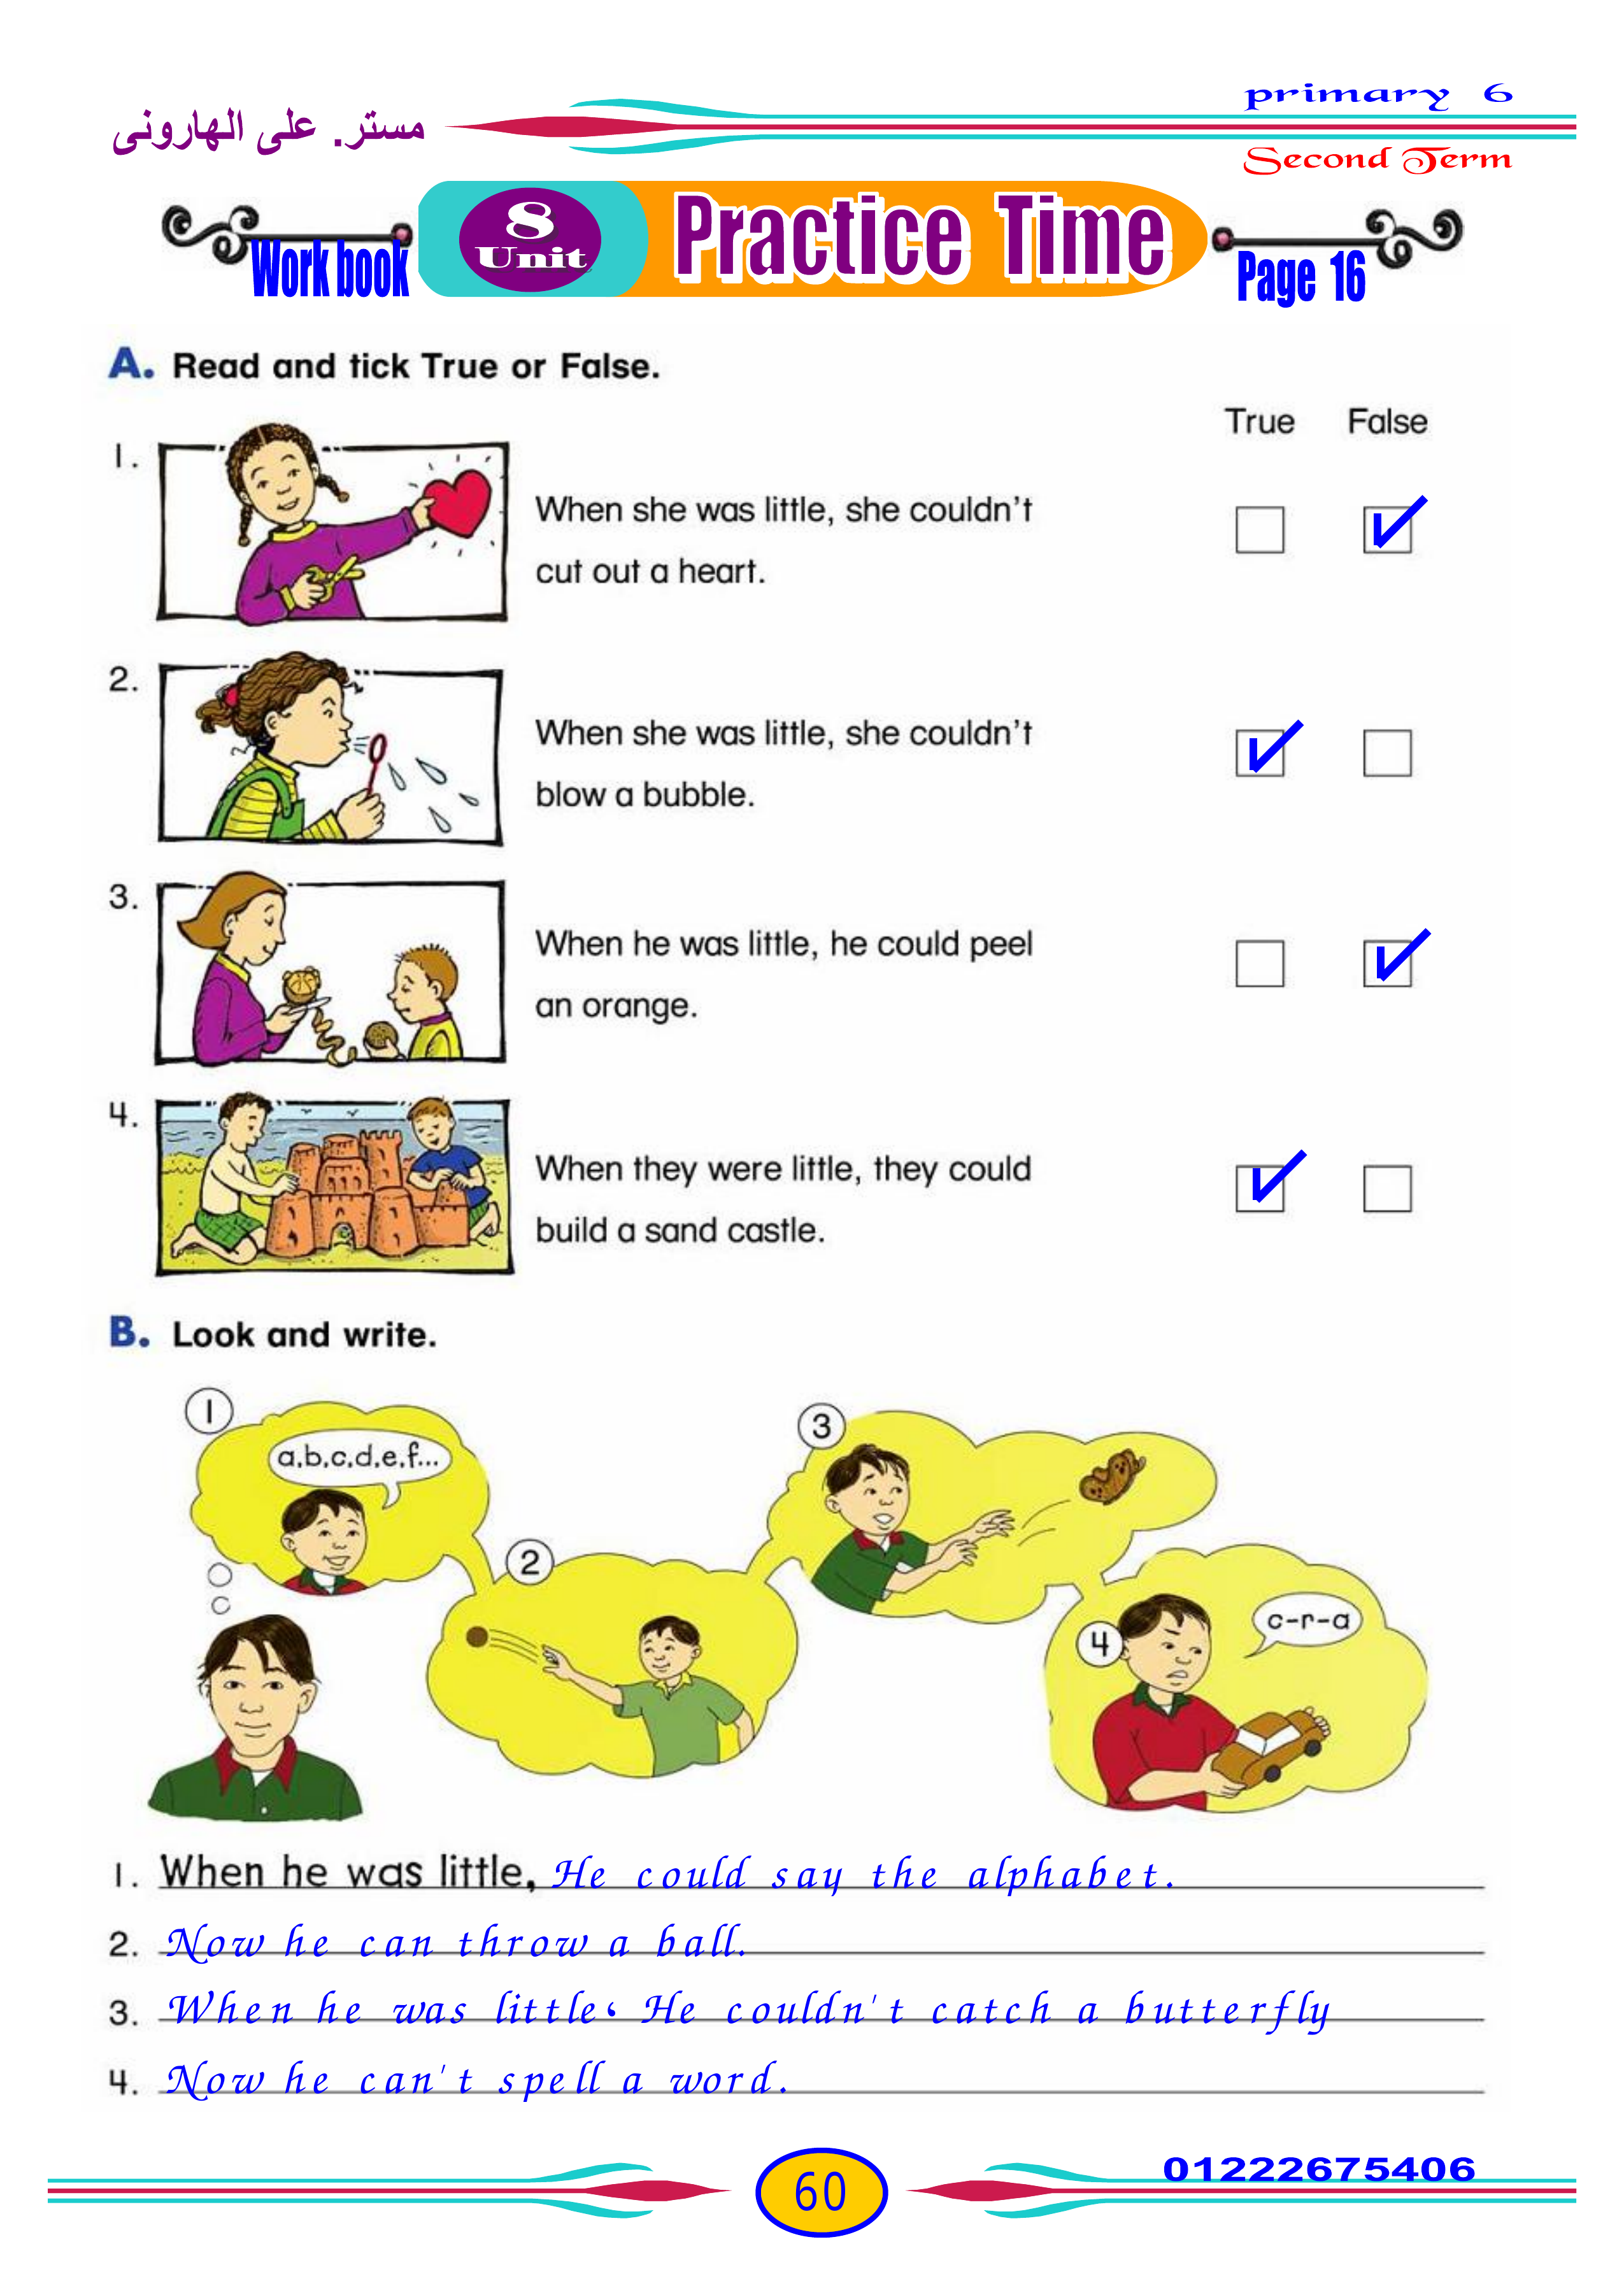 مستر. على الهارونى
primary 6
Second Term
Work book
8
Unit
Practice Time
Page 16
A. Read and tick True or False.
True False
1.
When she was little, she couldn't
cut out a heart.
2.
When she was little, she couldn't
blow a bubble.
3.
When he was little, he could peel
an orange.
4.
When they were little, they could
build a sand castle.
B. Look and write.
1
a,b,c,d,e,f...
2
3
4
c-r-a
1. When he was little, He could say the alphabet.
2. Now he can throw a ball.
3. When he was little، He couldn't catch a butterfly
4. Now he can't spell a word.
60
01222675406